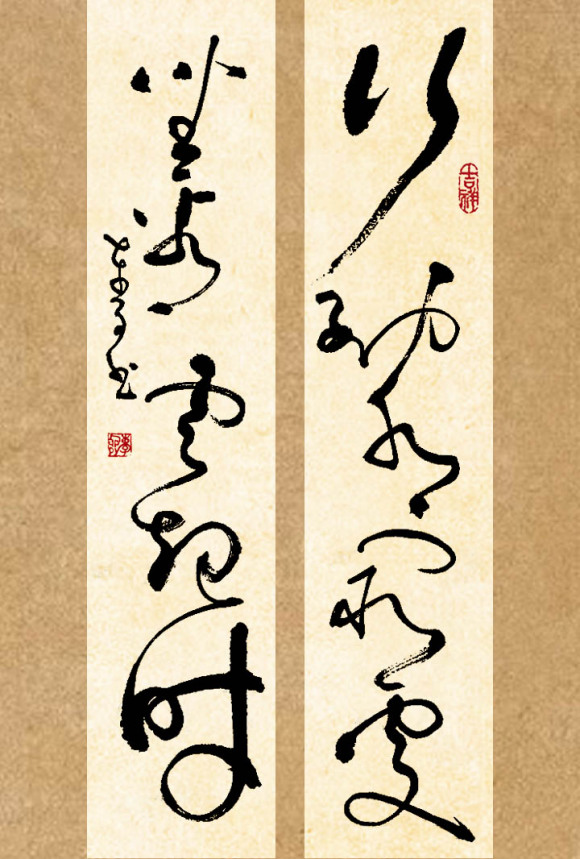 行到水窮處
吉祥
坐看雲起時